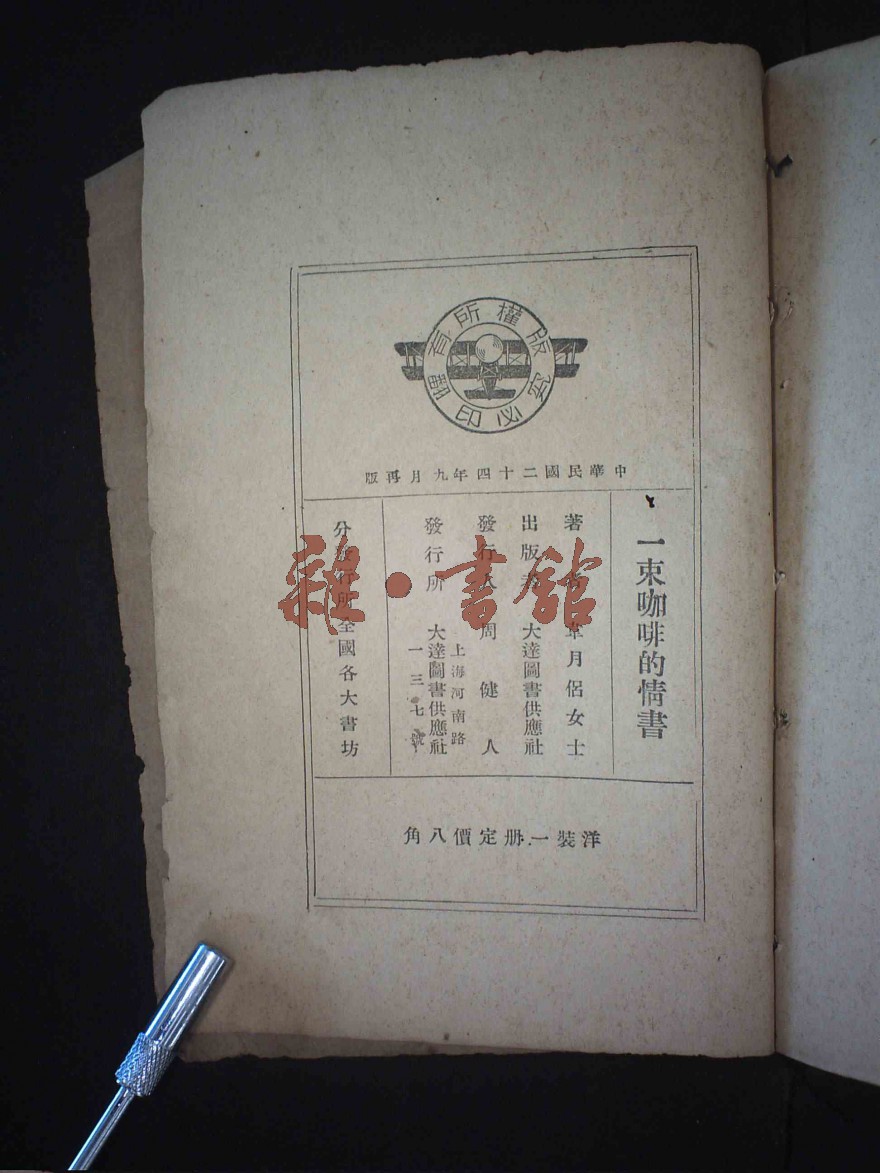 版權所有
翻印必究
中華民國二十四年九月再版
一束咖啡的情書
著者 韋月侶女士
出版者 大達圖書供應社
發行人 周健人
發行所 大達圖書供應社
上海河南路
一三七號
分發行所全國各大書坊
洋裝一册定價八角
雜·書館